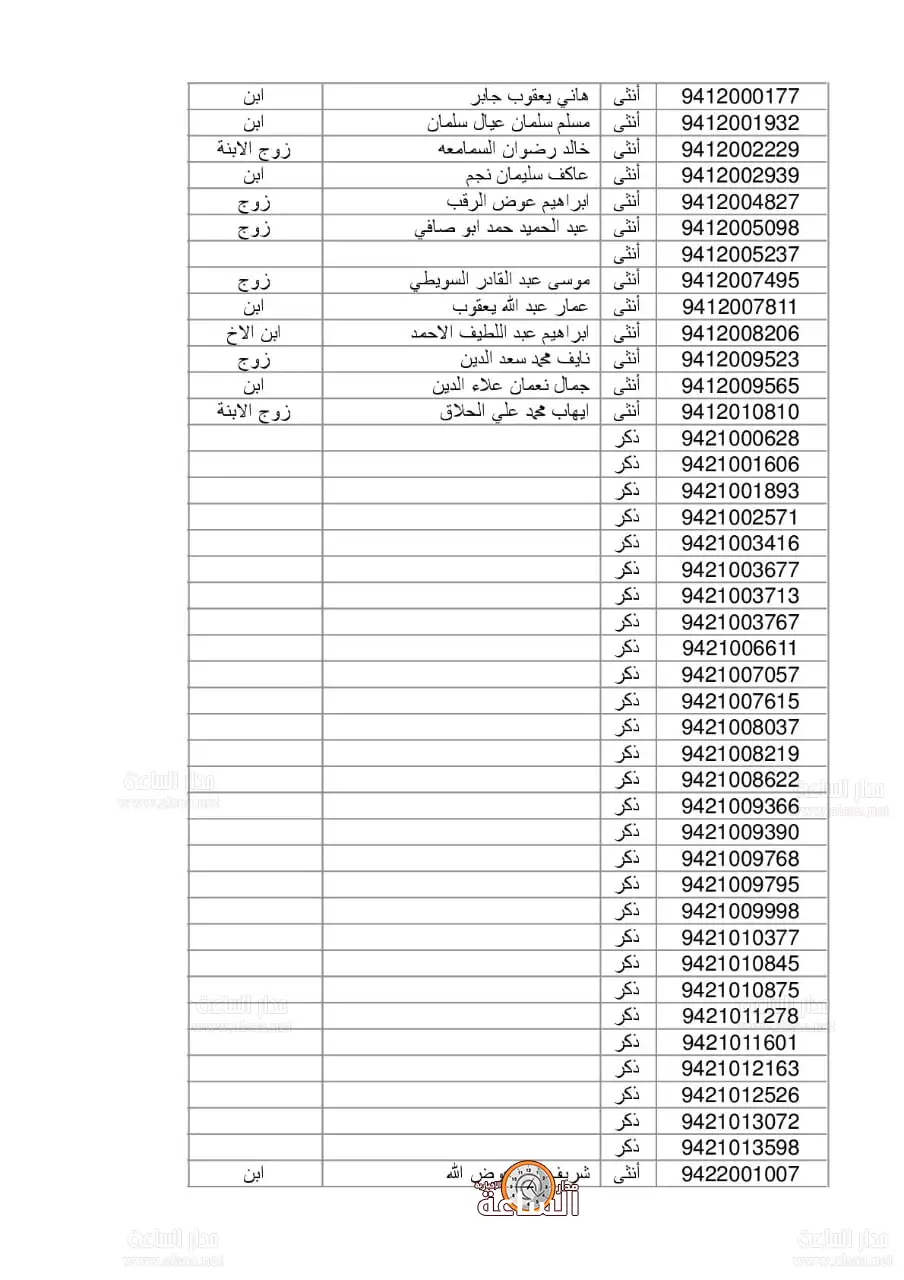 9412000177 أنثى هاني يعقوب جابر ابن
9412001932 أنثى مسلم سلمان عيال سلمان ابن
9412002229 أنثى خالد رضوان السمامعه زوج الابنة
9412002939 أنثى عاكف سليمان نجم ابن
9412004827 أنثى ابراهيم عوض الرقب زوج
9412005098 أنثى عبد الحميد حمد ابو صافي زوج
9412005237 أنثى
9412007495 أنثى موسى عبد القادر السويطي زوج
9412007811 أنثى عمار عبد الله يعقوب ابن
9412008206 أنثى ابراهيم عبد اللطيف الاحمد ابن الاخ
9412009523 أنثى نايف محمد سعد الدين زوج
9412009565 أنثى جمال نعمان علاء الدين ابن
9412010810 أنثى ايهاب محمد علي الحلاق زوج الابنة
9421000628 ذكر
9421001606 ذكر
9421001893 ذكر
9421002571 ذكر
9421003416 ذكر
9421003677 ذكر
9421003713 ذكر
9421003767 ذكر
9421006611 ذكر
9421007057 ذكر
9421007615 ذكر
9421008037 ذكر
9421008219 ذكر
9421008622 ذكر
9421009366 ذكر
9421009390 ذكر
9421009768 ذكر
9421009795 ذكر
9421009998 ذكر
9421010377 ذكر
9421010845 ذكر
9421010875 ذكر
9421011278 ذكر
9421011601 ذكر
9421012163 ذكر
9421012526 ذكر
9421013072 ذكر
9421013598 ذكر
9422001007 أنثى شريف الله ابن
مدار الساعة
مدار الساعة
www.alsaa.net
مدار الساعة
www.alsaa.net
مدار الساعة
www.alsaa.net
مدار الساعة
www.alsaa.net
مدار الساعة
www.alsaa.net
مدار الساعة
www.alsaa.net